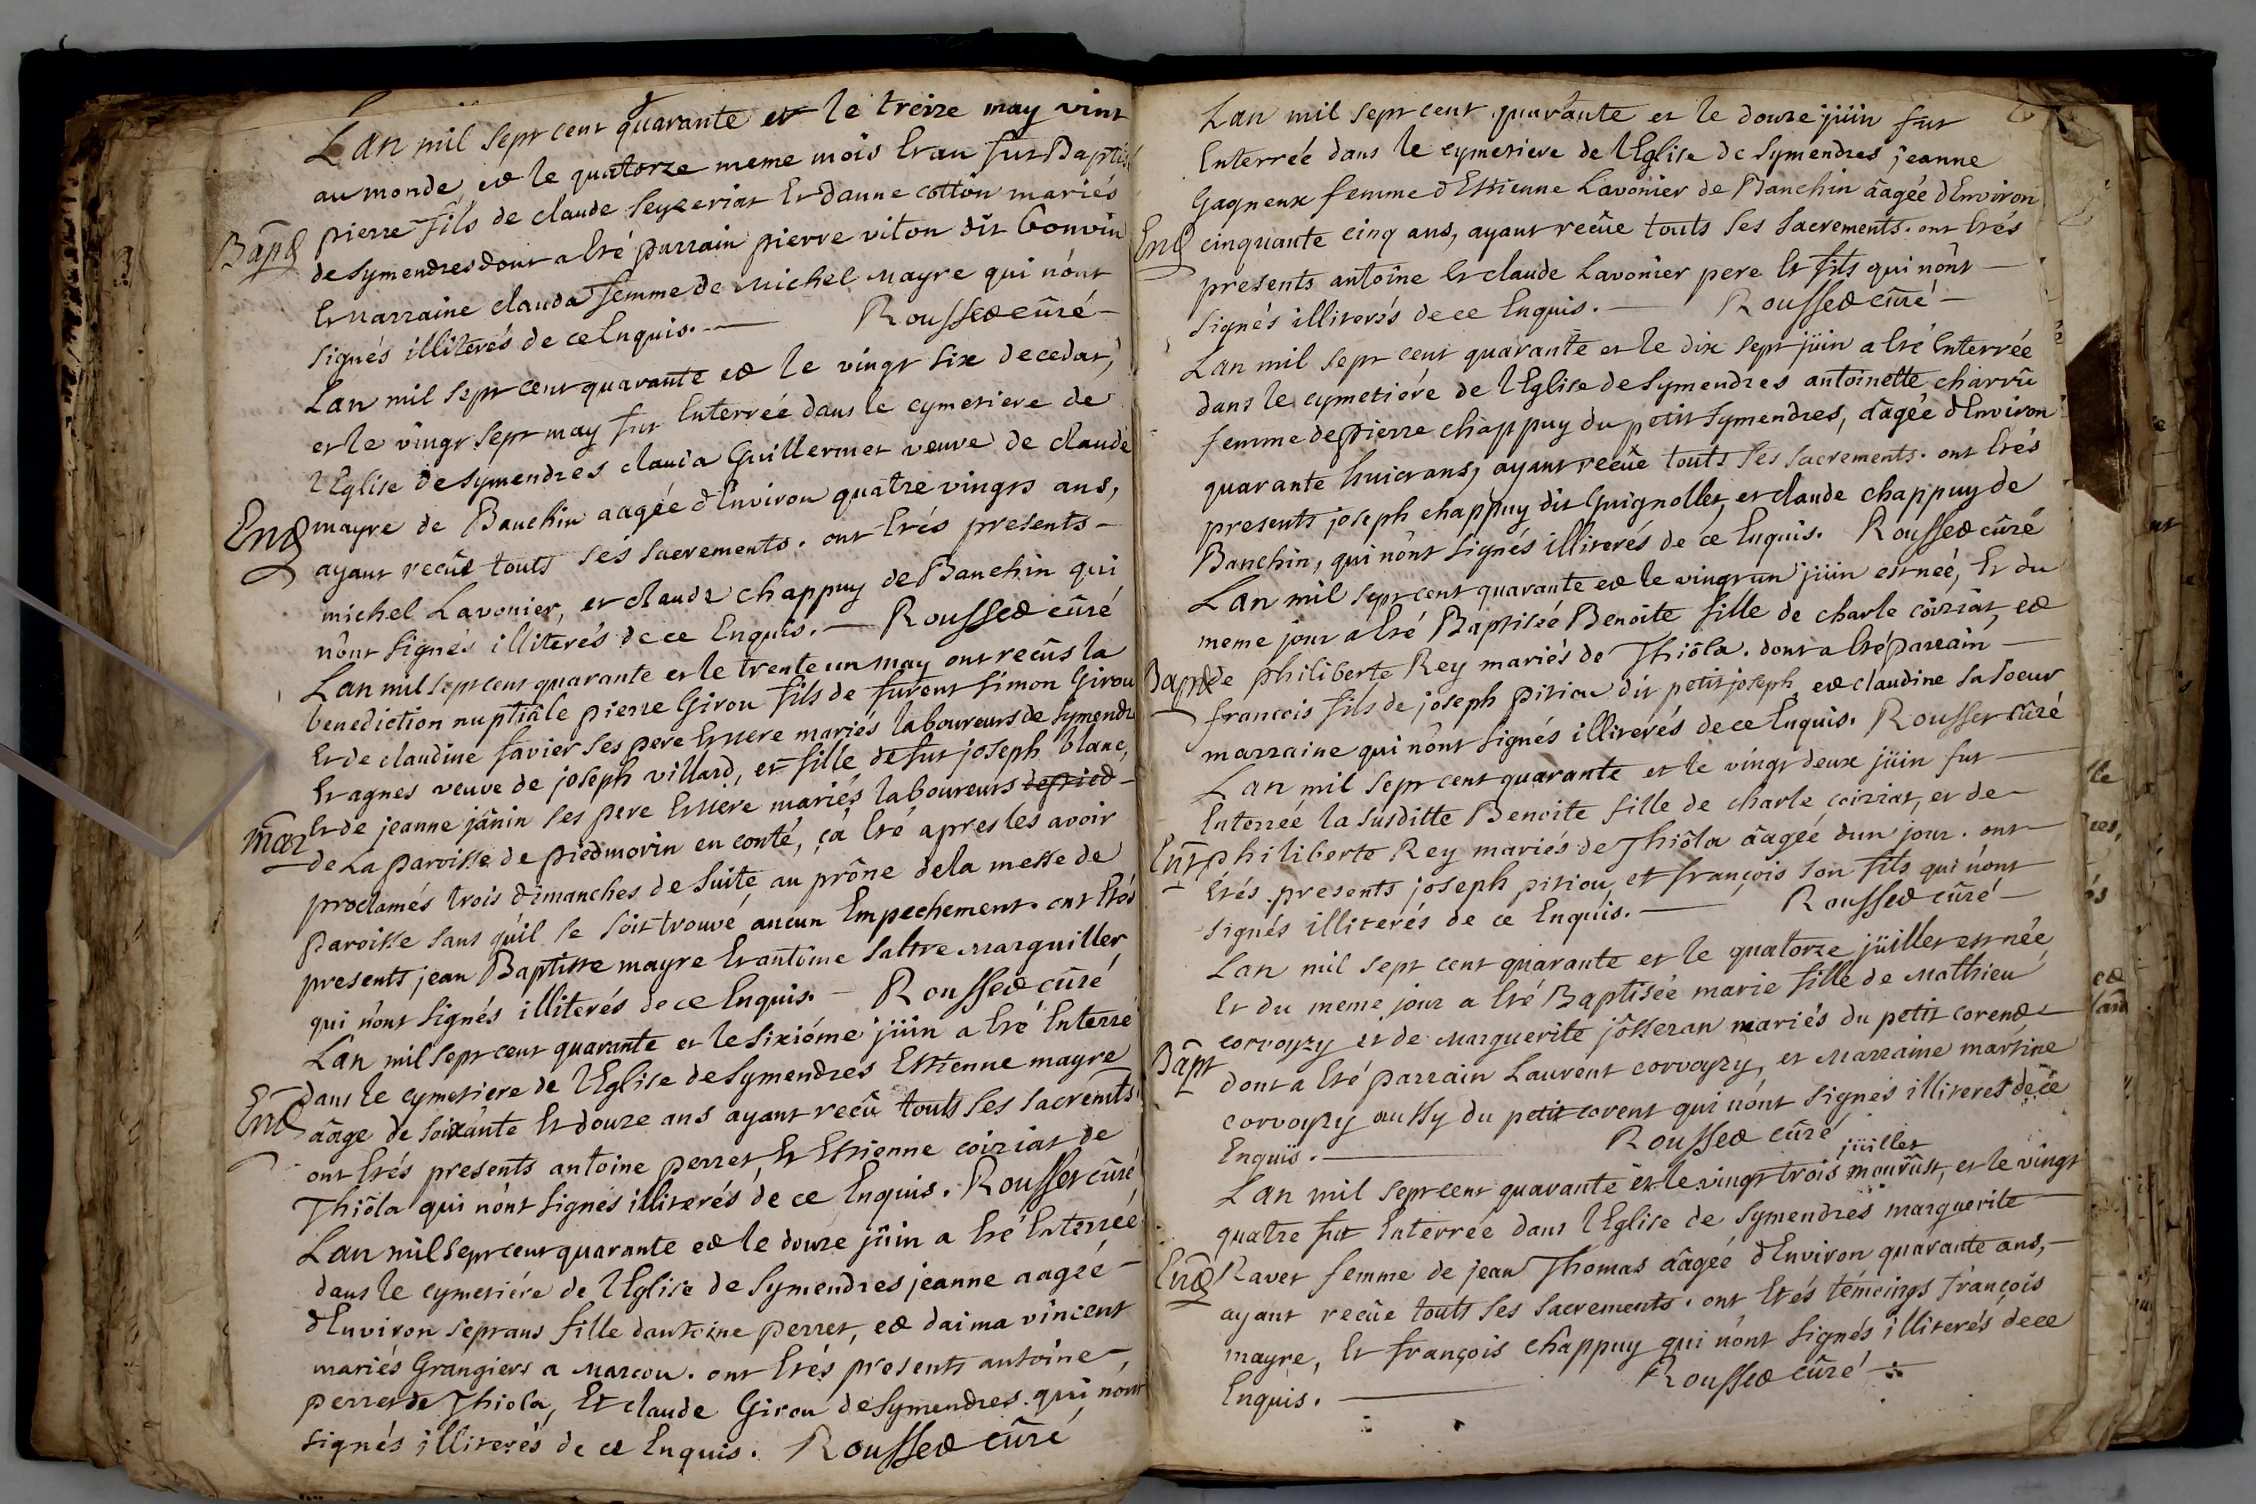 Lan mil sept cent quarante et le treize may vint
au monde, et le quatorze meme mois et an fut Baptisé
pierre fils de claude seyzeriat et danne cotton mariés
Bapt
de symendres dont a été parrain pierre viton dit bonvin
et marraine clauda femme de michel mayre qui n'ont
signés illiterés de ce enquis. Rousset cûré
Lan mil sept cent quarante et le vingt six decedat,
et le vingt sept may fut enterrée dans le cymetiere de
l'Eglise de symendres claudia Guillermet veuve de claude
Ent mayre de Banchin aagée d'Environ quatre vingts ans,
ayant recûe touts ses sacrements. ont etés presents
michel Lavonier, et claude chappuy de Banchin qui
n'ont signés illiterés de ce enquis. Rousset cûré
Lan mil sept cent quarante et le trente un may ont recûs la
benediction nuptiâle pierre Girou fils de furent simon Girou
et de claudine favier ses pere et mere mariés laboureurs de symendre
et agnes veuve de joseph villard, et fille de fut joseph blanc,
mar et de jeanne jânin ses pere et mere mariés laboureurs de pied
de La paroisse de piedmorin en conté, ça été apres les avoir
proclamés trois dimanches de suite au prône de la messe de
paroisse sans qu'il se soit trouvé aucun Empechement. ont etés
presents jean Baptiste mayre et antoine saltre marguiller
qui n'ont signés illiterés de ce enquis. Rousset cûré
Lan mil sept cent quarante et le sixiéme jüin a été enterré
dans le cymetiere de l'Eglise de symendres Estienne mayre
Ent aâge de soixante et douze ans ayant recû touts ses sacremts
ont etés presents antoine perret et Estienne coiziat de
Thiôla qui n'ont signés illiterés de ce enquis. Rousset cûré
Lan mil sept cent quarante et le douze jüin a été enterrée
dans le cymetiére de l'Eglise de symendres jeanne aagée
d'Environ sept ans fille dantoine perret, et daima vincent
mariés Grangiers a marcou. ont etés presents antoine
perret de Thiola, Et claude Girou de symendres qui n'ont
signés illiterés de ce enquis. Rousset cûré
Lan mil sept cent quarante et le douze jüin fut
Enterrée dans le cymetiere de l'Eglise de symendres jeanne
Gagneux femme d'Estienne Lavonier de Banchin âagée d'Environ
Ent cinquante cinq ans, ayant recûe touts ses sacrements. ont etés
presents antoine et claude Lavonier pere et fils qui n'ont
signés illiterés de ce enquis. Rousset cûré
Lan mil sept cent quarante et le dix sept jüin a été enterrée
dans le cymetiére de l'Eglise de symendres antoinette charrû
femme de pierre chappuy du petit symendres, aâgée d'Environ
quarante huict ans, ayant recûe touts ses sacrements. ont etés
presents joseph chappuy dit Guignollet, et claude chappuy de
Banchin, qui n'ont signés illiterés de ce enquis. Rousset cûré
Lan mil sept cent quarante et le vingt un jüin est neé, et du
meme jour a été Baptiseé Benoite fille de charle coiziat, et
Bapt de philiberte Rey mariés de Thiôla. dont a été parrain
francois fils de joseph pitiou dit petit joseph et claudine sa soeur
marraine qui n'ont signés illiterés de ce enquis. Rousset cûré
Lan mil sept cent quarante et le vingt deux jüin fut
enterrée la susditte Benoite fille de charle coiziat, et de
Ent philiberte Rey mariés de Thiôla âageé dun jour. ont
etés presents joseph pitiou et françois son fils qui n'ont
signés illiterés de ce enquis. Rousset cûré
Lan mil sept cent quarante et le quatorze jüillet est née
et du meme jour a été Baptisée marie fille de Mathieu
corvayzy et de marguerite jôsseran mariés du petit corend
Bapt
dont a été parrain Laurent corvayzy, et marraine martine
corvayzy aussy du petit corent qui n'ont signés illiterés de ce
Enquis. Rousset cûré
jüillet
Lan mil sept cent quarante et le vingt trois mourust, et le vingt
quatre fut enterrée dans l'Eglise de symendres marguerite
Ent Ravet femme de jean Thomas âagée d'Environ quarante ans,
ayant recûe touts ses sacrements. ont etés témoings françois
mayre, et françois chappuy qui n'ont signés illiterés de ce
Enquis. Rousset cûré